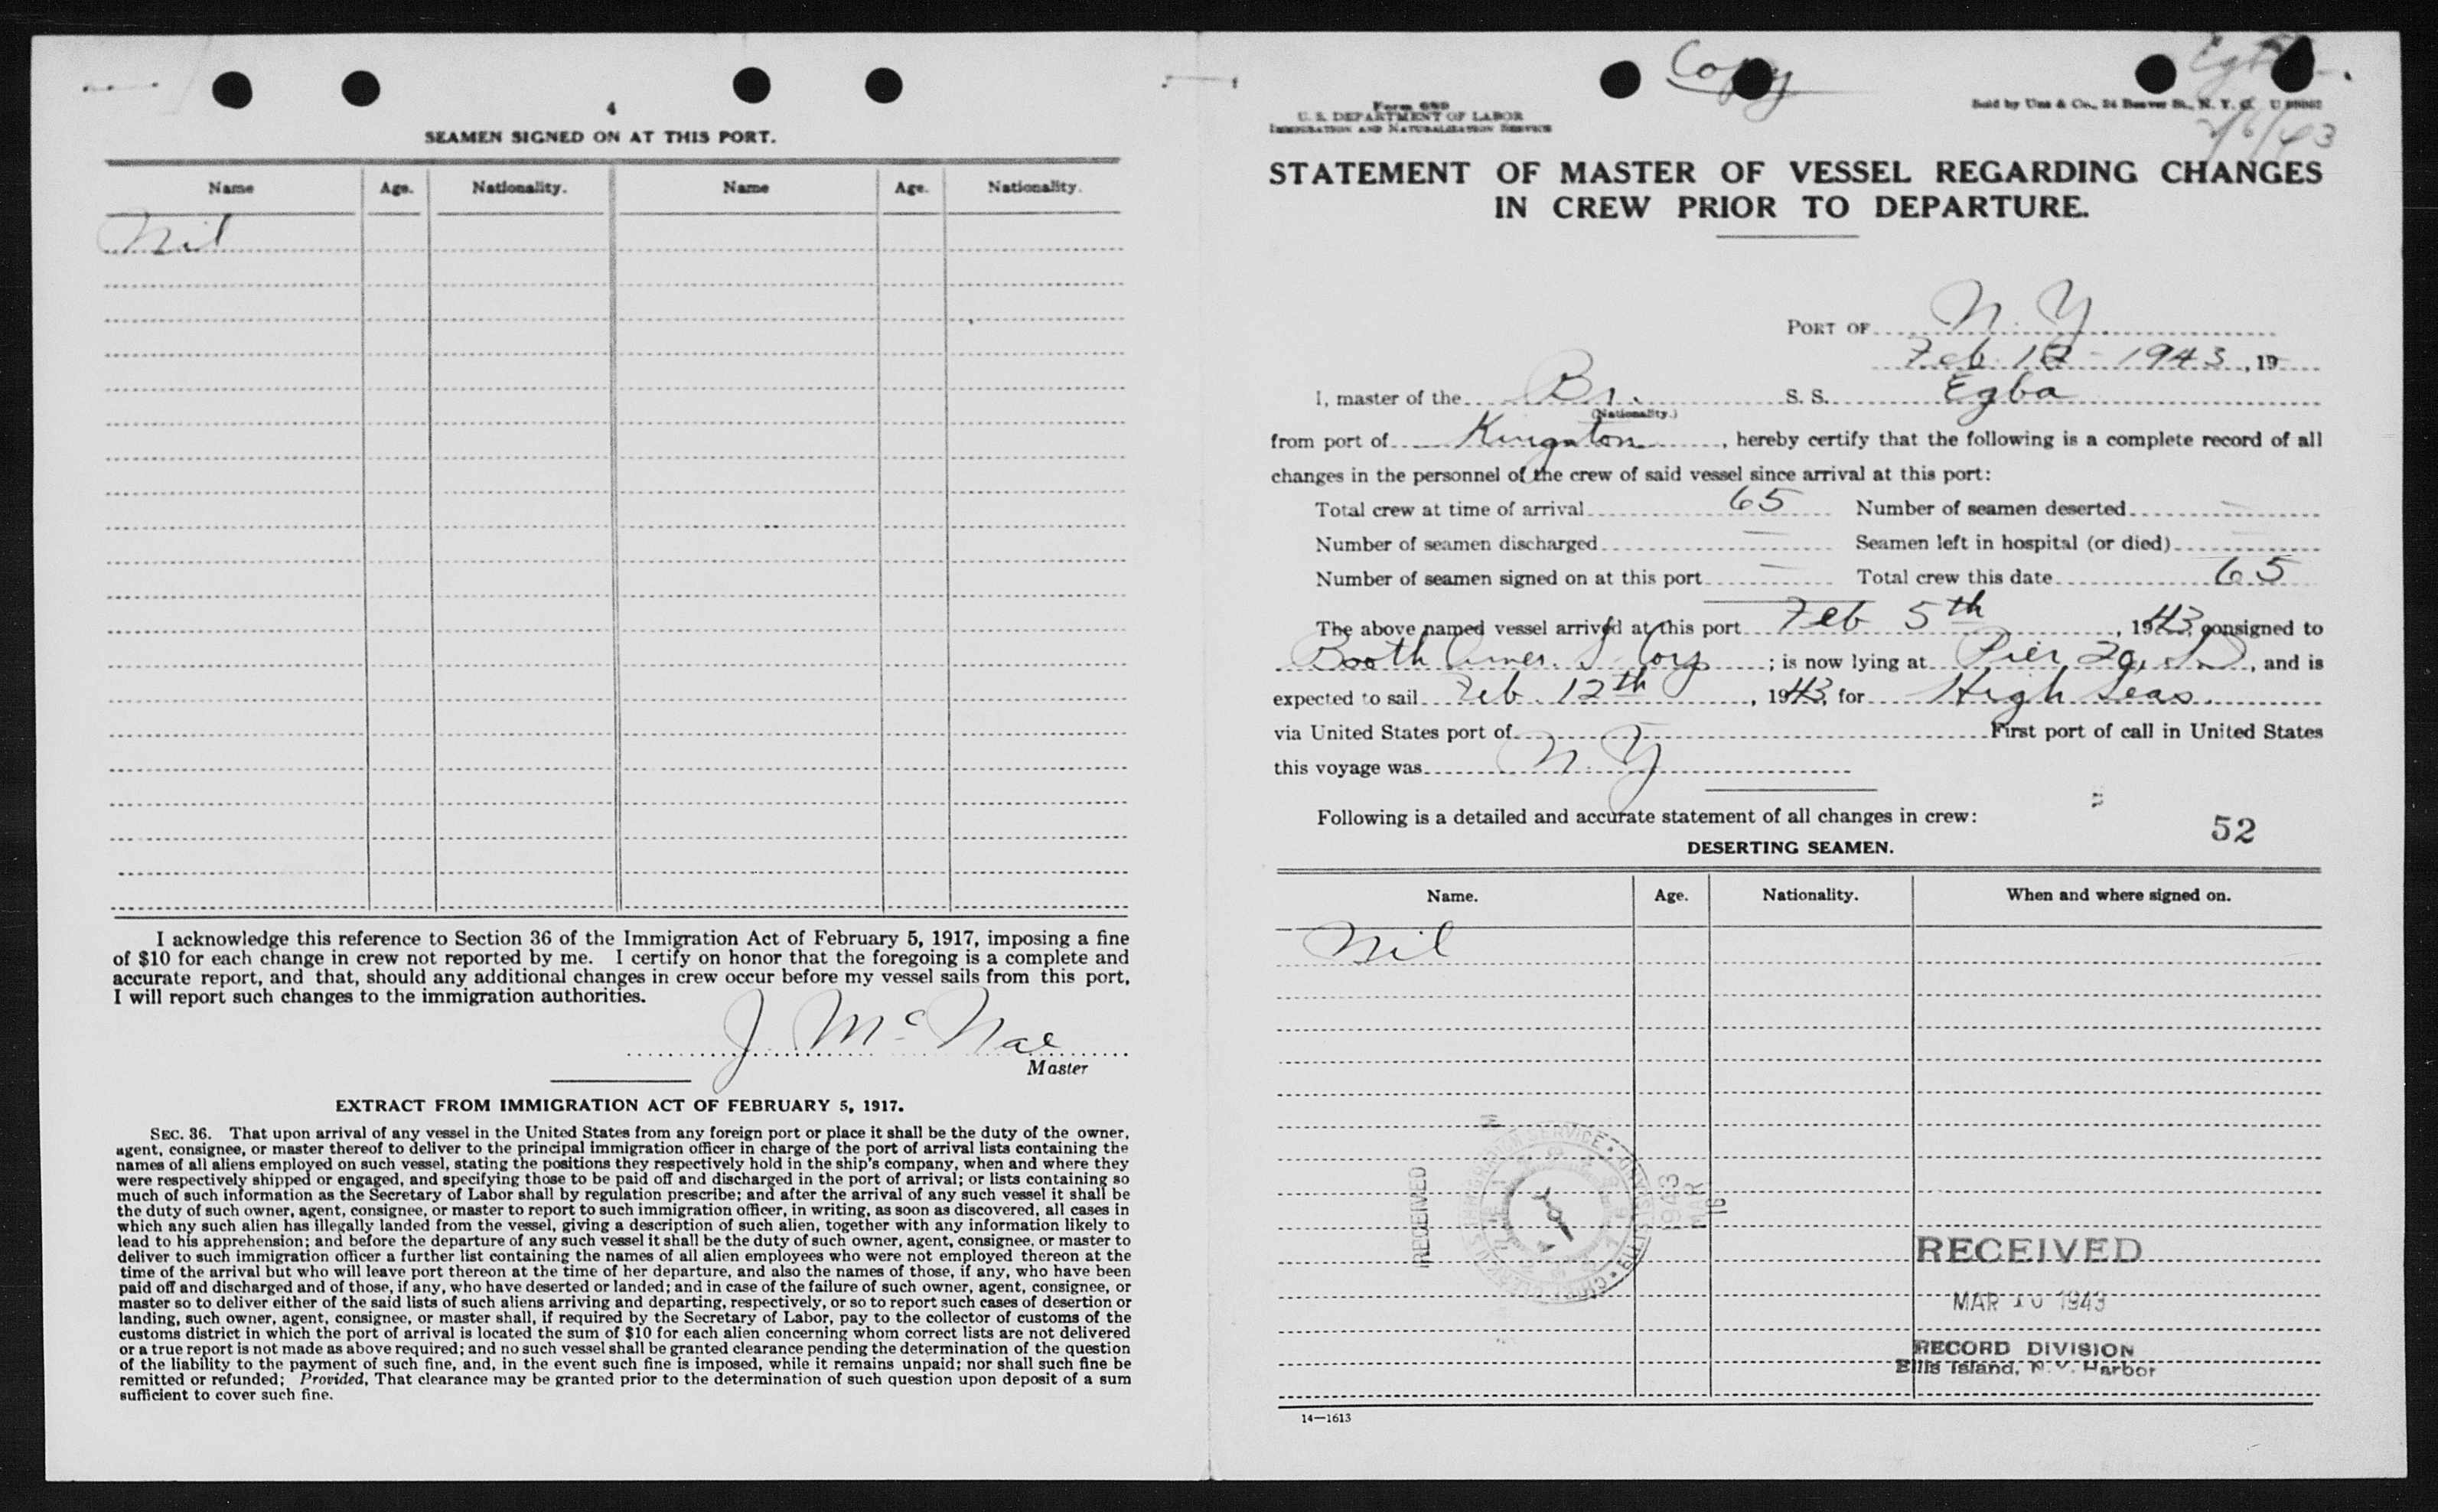 4
SEAMEN SIGNED ON AT THIS PORT.
Name Age. Nationality. Name Age. Nationality.
Nil
I acknowledge this reference to Section 36 of the Immigration Act of February 5, 1917, imposing a fine
of $10 for each change in crew not reported by me. I certify on honor that the foregoing is a complete and
accurate report, and that, should any additional changes in crew occur before my vessel sails from this port,
I will report such changes to the immigration authorities.
J McNae
Master
EXTRACT FROM IMMIGRATION ACT OF FEBRUARY 5, 1917.
SEC. 36. That upon arrival of any vessel in the United States from any foreign port or place it shall be the duty of the owner,
agent, consignee, or master thereof to deliver to the principal immigration officer in charge of the port of arrival lists containing the
names of all aliens employed on such vessel, stating the positions they respectively hold in the ship's company, when and where they
were respectively shipped or engaged, and specifying those to be paid off and discharged in the port of arrival; or lists containing so
much of such information as the Secretary of Labor shall by regulation prescribe; and after the arrival of any such vessel it shall be
the duty of such owner, agent, consignee, or master to report to such immigration officer, in writing, as soon as discovered, all cases in
which any such alien has illegally landed from the vessel, giving a description of such alien, together with any information likely to
lead to his apprehension; and before the departure of any such vessel it shall be the duty of such owner, agent, consignee, or master to
deliver to such immigration officer a further list containing the names of all alien employees who were not employed thereon at the
time of the arrival but who will leave port thereon at the time of her departure, and also the names of those, if any, who have been
paid off and discharged and of those, if any, who have deserted or landed; and in case of the failure of such owner, agent, consignee, or
master so to deliver either of the said lists of such aliens arriving and departing, respectively, or so to report such cases of desertion or
landing, such owner, agent, consignee, or master shall, if required by the Secretary of Labor, pay to the collector of customs of the
customs district in which the port of arrival is located the sum of $10 for each alien concerning whom correct lists are not delivered
or a true report is not made as above required; and no such vessel shall be granted clearance pending the determination of the question
of the liability to the payment of such fine, and, in the event such fine is imposed, while it remains unpaid; nor shall such fine be
remitted or refunded; Provided, That clearance may be granted prior to the determination of such question upon deposit of a sum
sufficient to cover such fine.
Copy
Form 689
U. S. DEPARTMENT OF LABOR
IMMIGRATION AND NATURALIZATION SERVICE
Sold by Unz & Co., 24 Beaver St., N. Y. C.
2/6/43
STATEMENT OF MASTER OF VESSEL REGARDING CHANGES
IN CREW PRIOR TO DEPARTURE.
PORT OF N. Y.
Feb. 12 - 1943, 19
I, master of the Br. S. S. Egba
(Nationality.)
from port of Kingston, hereby certify that the following is a complete record of all
changes in the personnel of the crew of said vessel since arrival at this port:
Total crew at time of arrival 65 Number of seamen deserted —
Number of seamen discharged — Seamen left in hospital (or died) —
Number of seamen signed on at this port — Total crew this date 65
The above named vessel arrived at this port Feb 5th, 1943, consigned to
Booth Amer. S Corp; is now lying at Pier 29, and is
expected to sail Feb. 12th, 1943, for High Seas.
via United States port of First port of call in United States
this voyage was N. Y
Following is a detailed and accurate statement of all changes in crew:
52
DESERTING SEAMEN.
Name. Age. Nationality. When and where signed on.
Nil
RECEIVED
1943
MAR
RECEIVED
MAR 10 1943
RECORD DIVISION
Ellis Island, N. Y. Harbor
14—1613